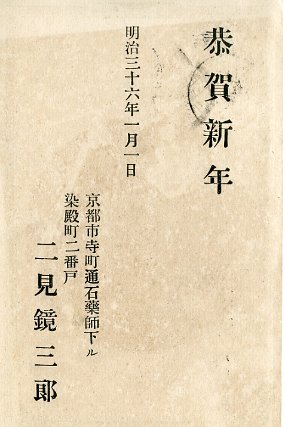 恭賀新年
明治三十六年一月一日
京都市寺町通石藥師下ル
染殿町二番戸
二見鏡三郎